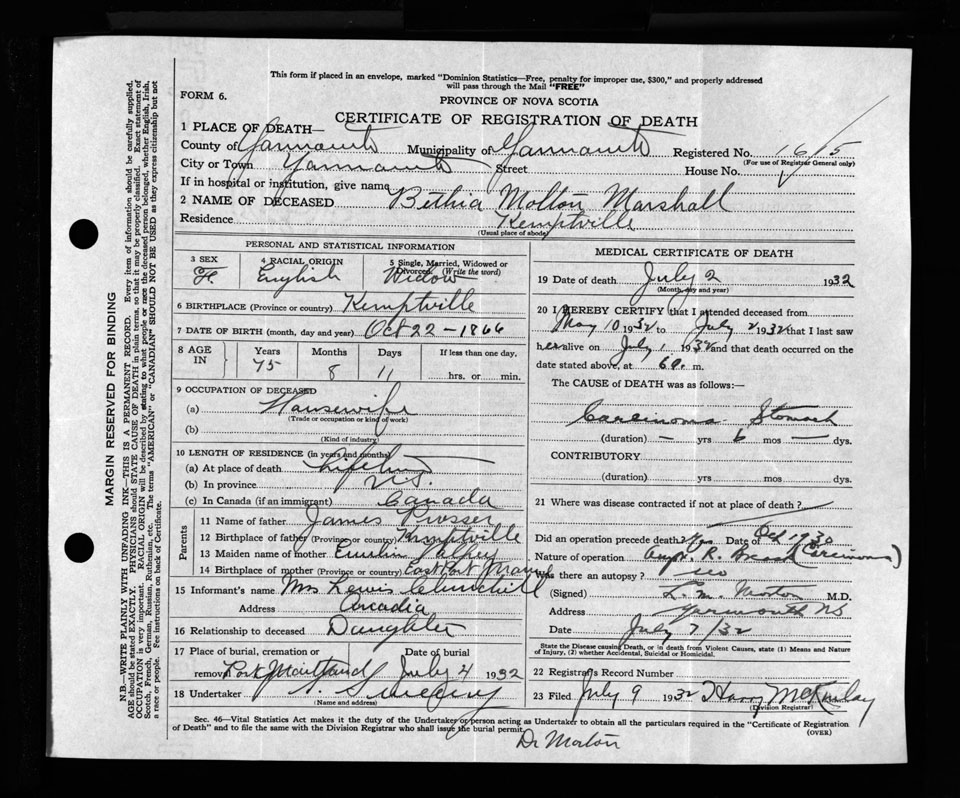 This form if placed in an envelope, marked "Dominion Statistics—Free, penalty for improper use, $300," and properly addressed
will pass through the Mail "FREE"
FORM 6.
PROVINCE OF NOVA SCOTIA
CERTIFICATE OF REGISTRATION OF DEATH
1 PLACE OF DEATH—
County of Yarmouth Municipality of Yarmouth Registered No. 1615
(For use of Registrar General only)
City or Town Yarmouth Street House No.
If in hospital or institution, give name
2 NAME OF DECEASED Bethia Molton Marshall
Residence Kemptville
(Usual place of abode)
PERSONAL AND STATISTICAL INFORMATION
3 SEX F. 4 RACIAL ORIGIN English 5 Single, Married, Widowed or Divorced (Write the word) Widow
6 BIRTHPLACE (Province or country) Kemptville
7 DATE OF BIRTH (month, day and year) Oct 22 - 1866
8 AGE IN Years Months Days If less than one day,
75 8 11 hrs. or min.
9 OCCUPATION OF DECEASED
(a) Housewife
(Trade or occupation or kind of work)
(b)
(Kind of industry)
10 LENGTH OF RESIDENCE (in years and months)
(a) At place of death Lifetime
(b) In province N.S.
(c) In Canada (if an immigrant) Canada
Parents
11 Name of father James Prosser
12 Birthplace of father (Province or country) Kemptville
13 Maiden name of mother
14 Birthplace of mother (Province or country)
15 Informant's name Mrs Lewis Churchill
Address Arcadia
16 Relationship to deceased Daughter
17 Place of burial, cremation or removal Port Maitland Date of burial July 4 1932
18 Undertaker A. Sweeny
(Name and address)
MEDICAL CERTIFICATE OF DEATH
19 Date of death July 2 1932
(Month, day and year)
20 I HEREBY CERTIFY that I attended deceased from
May 10 1932 to July 2 1932 that I last saw
her alive on July 1 1932 and that death occurred on the
date stated above, at 6 a. m.
The CAUSE of DEATH was as follows:
Carcinoma Stomach
(duration) — yrs 6 mos — dys.
CONTRIBUTORY
(duration) yrs mos dys.
21 Where was disease contracted if not at place of death?
Did an operation precede death? Yes Date of Oct 1930
Nature of operation Amp. R. Breast (Carcinoma)
Was there an autopsy? no
(Signed) L. M. Morton M.D.
Address Yarmouth NS
Date July 7/32
State the Disease causing Death, or in death from Violent Causes, state (1) Means and Nature
of Injury, (2) whether Accidental, Suicidal or Homicidal.
22 Registrar's Record Number
23 Filed July 9 1932 Harry McKinlay
(Division Registrar)
Sec. 46—Vital Statistics Act makes it the duty of the Undertaker or person acting as Undertaker to obtain all the particulars required in the "Certificate of Registration
of Death" and to file the same with the Division Registrar who shall issue the burial permit.
(OVER)
Dr Morton
MARGIN RESERVED FOR BINDING
N.B.—WRITE PLAINLY WITH UNFADING INK—THIS IS A PERMANENT RECORD. Every item of information should be carefully supplied.
AGE should be stated EXACTLY. PHYSICIANS should STATE CAUSE OF DEATH in plain terms, so that it may be properly classified. Exact statement of
OCCUPATION is very important. RACIAL ORIGIN will be described by stating to what people or race the deceased person belonged, whether English, Irish,
Scotch, French, German, Russian, Ruthenian, etc. The terms "AMERICAN" or "CANADIAN" SHOULD NOT BE USED as they express citizenship but not
a race or people. Fee instructions on back of Certificate.